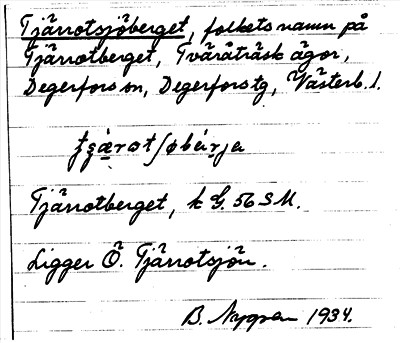 Tjärrotsjöberget, folkets namn på
Tjärrotberget, Tväråträsk ägor,
Degerfors sn, Degerfors tg, Västerb. l.
Tjärrotberget, k G. 56 SM.
Ligger Ö. Tjärrotsjön.
B. Nygren 1934.